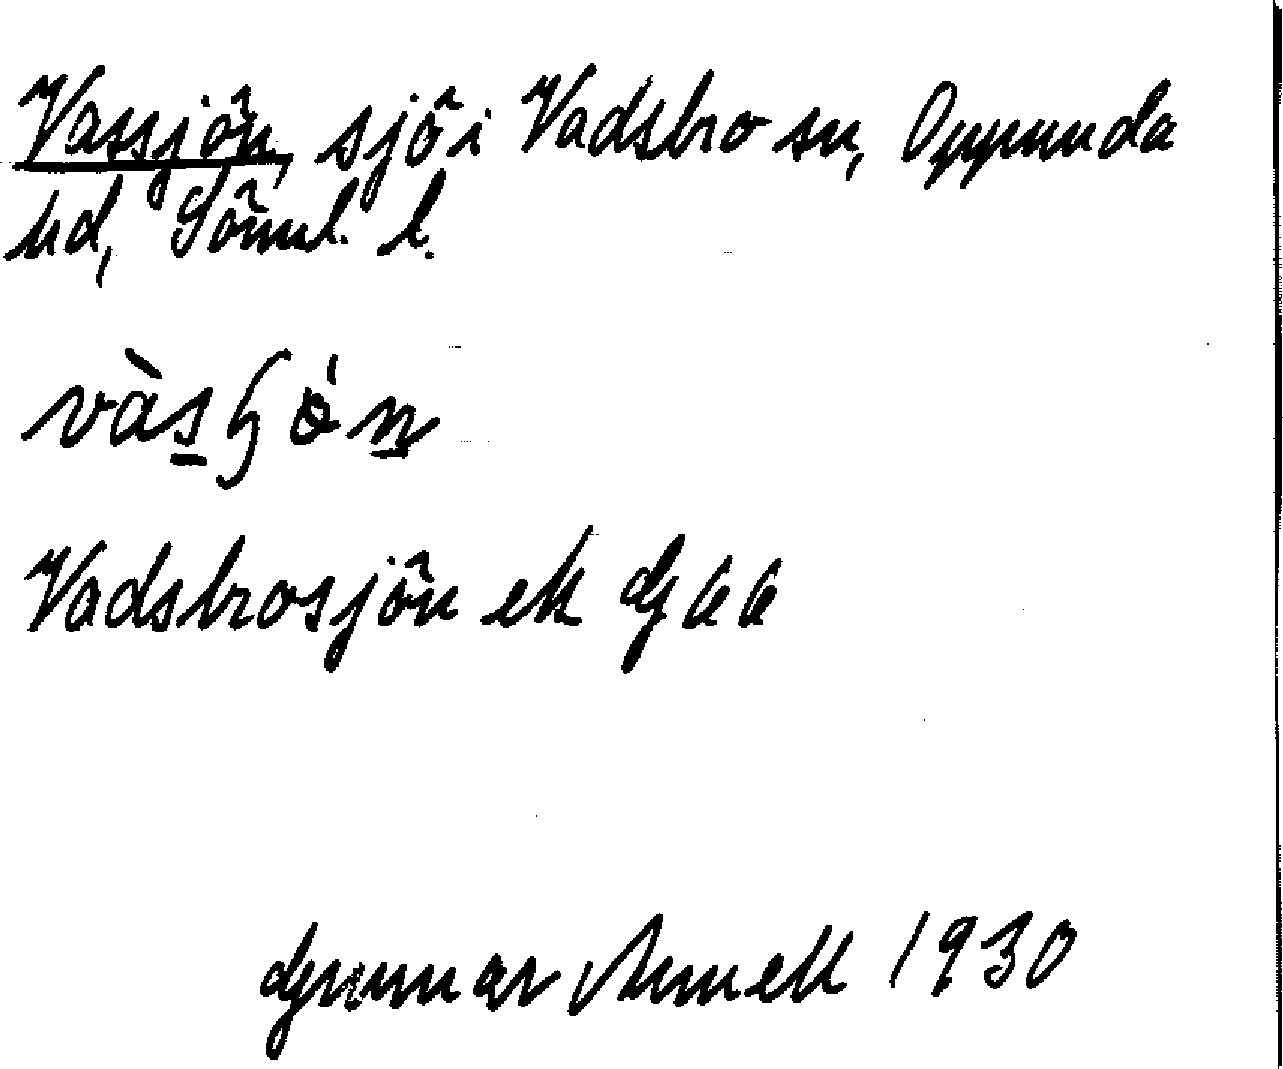 Vassjön, sjö i Vadsbro sn, Oppunda
hd, Söml. l.
Vadsbrosjön ek G 66
Gunnar Arnell 1930